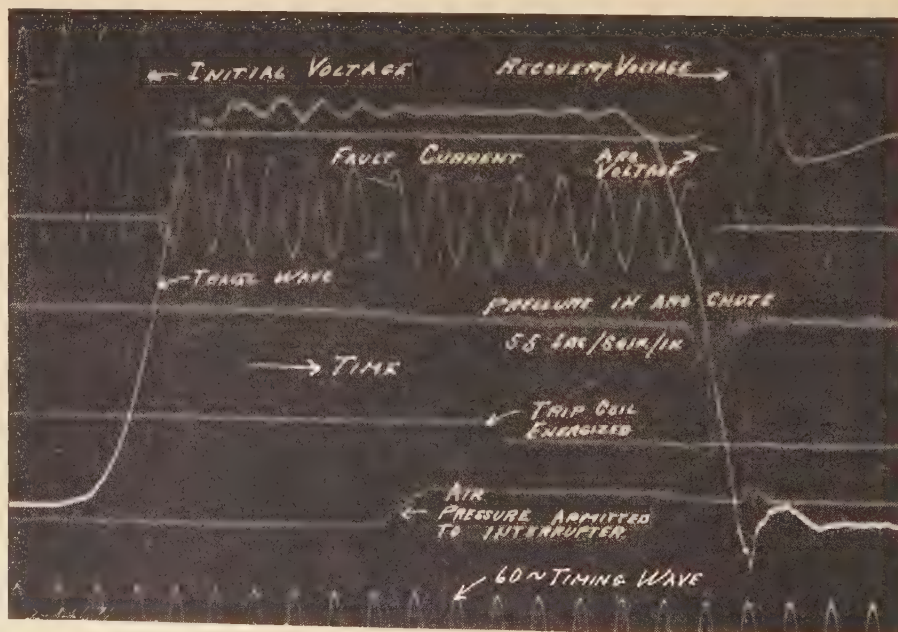 INITIAL VOLTAGE
RECOVERY VOLTAGE
FAULT CURRENT
ARC
VOLTAGE
TRAVEL WAVE
PRESSURE IN ARC CHUTE
TIME
TRIP COIL
ENERGIZED
AIR
PRESSURE ADMITTED
TO INTERRUPTER
60~ TIMING WAVE